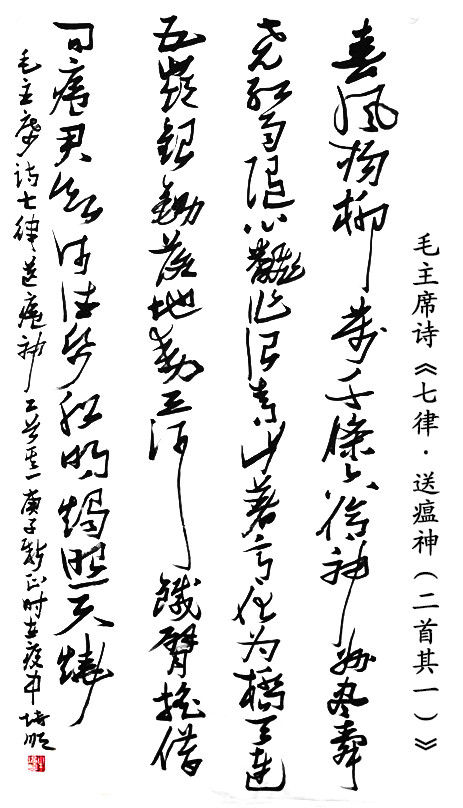 毛主席诗《七律·送瘟神(二首其一)》
春风杨柳萬千條六億神州盡舜
尧红雨随心翻作浪青山著意化为橋天连
五嶺银锄落地動三河鐵臂摇借
问瘟君欲何往纸船明燭照天烧
毛主席诗七律送瘟神二首其一庚子新正时在疫中